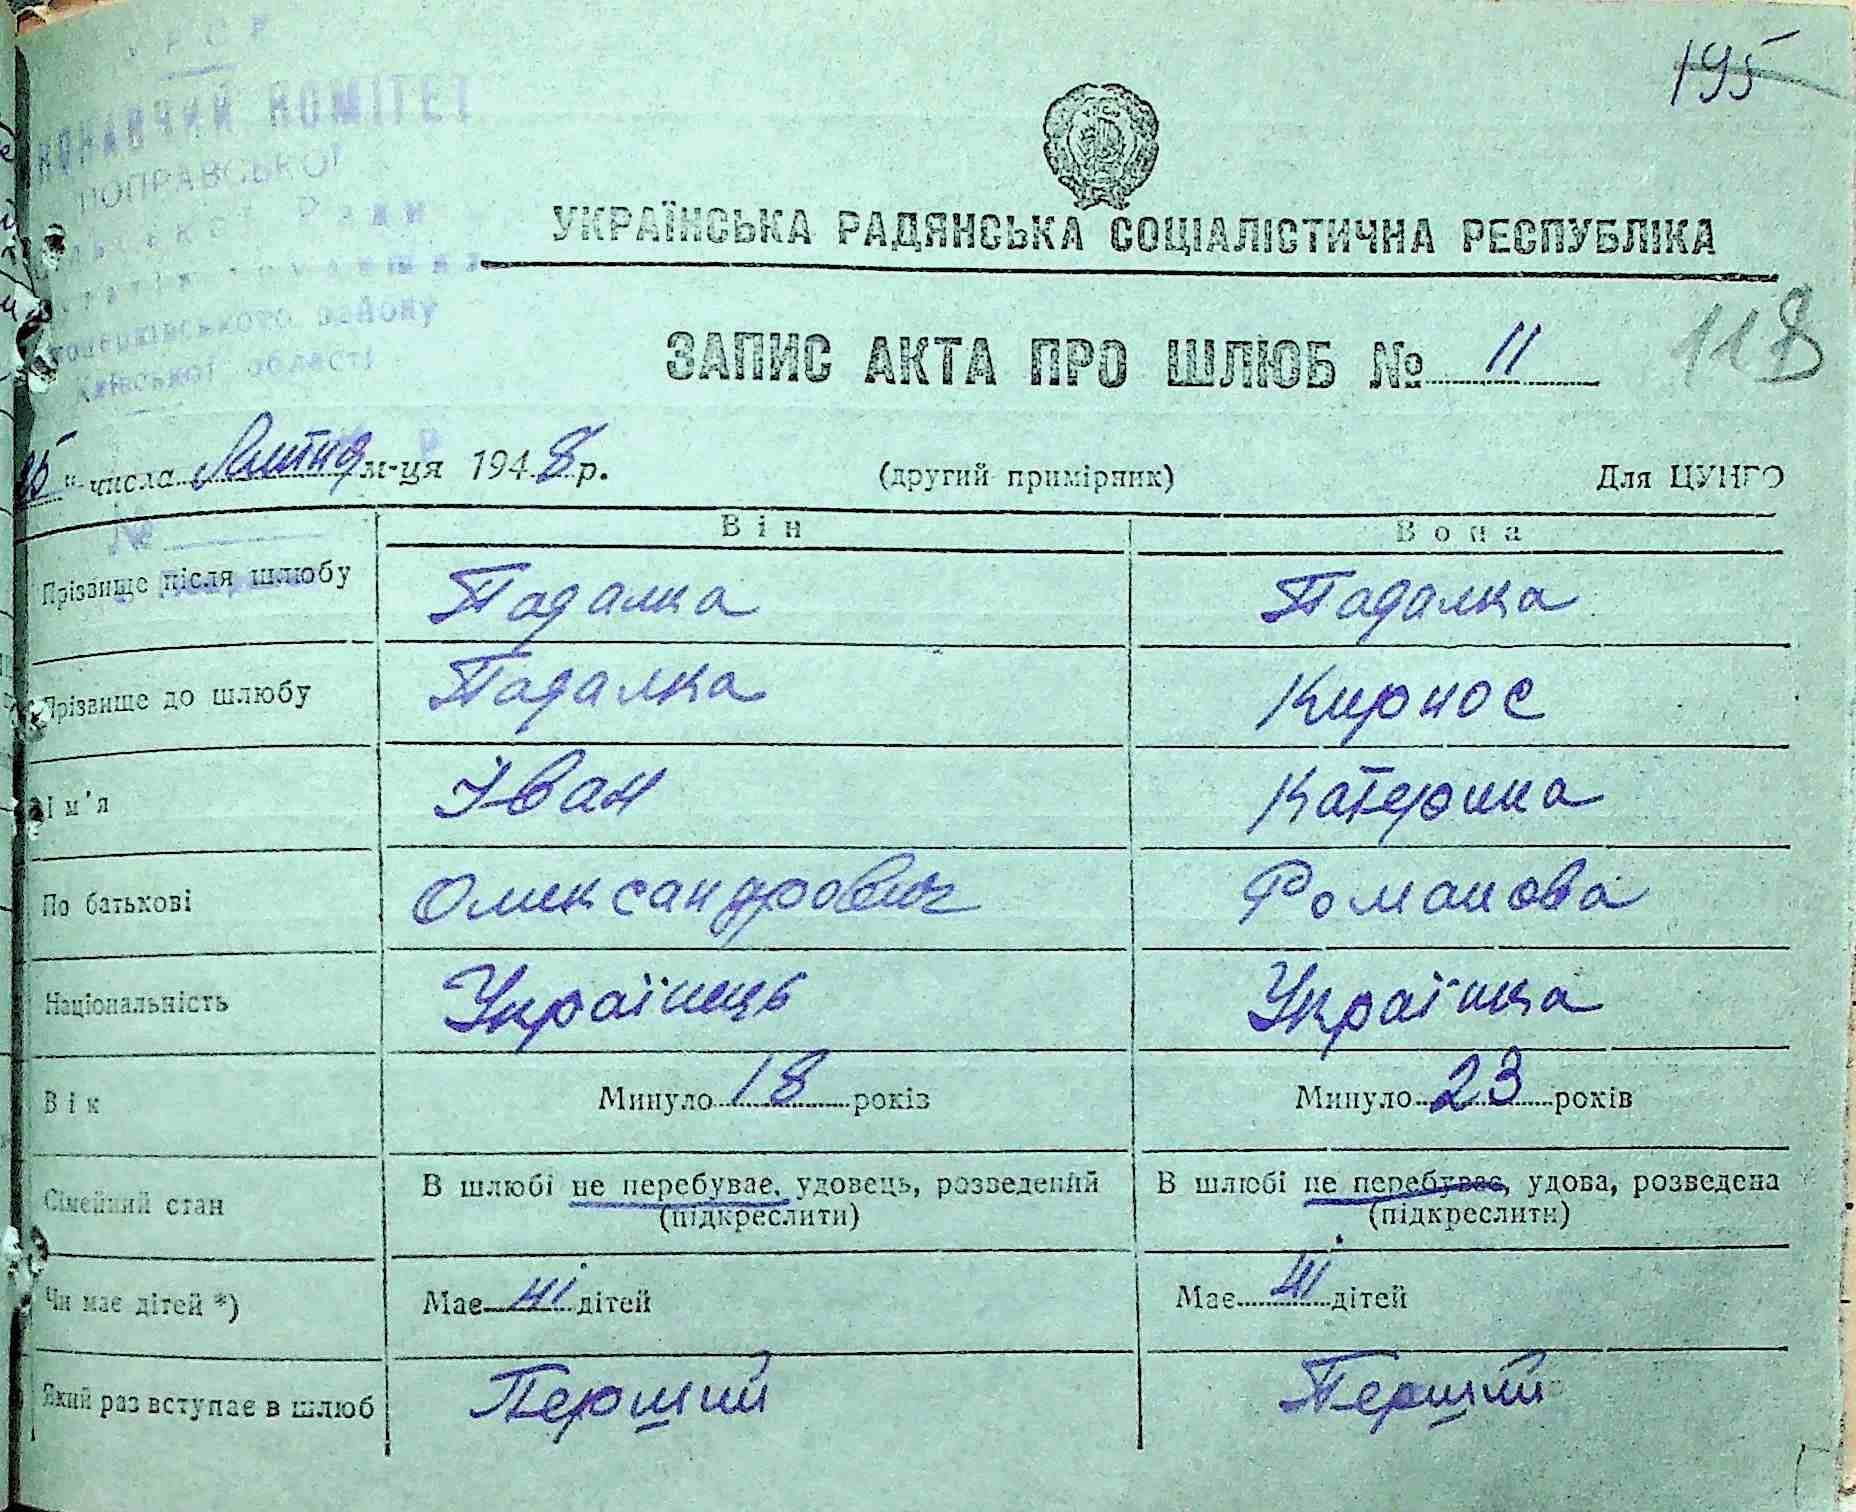 КОМІТЕТ
ПОПРАВСЬКОЇ
Ради
району
Київської області
195
УКРАЇНСЬКА РАДЯНСЬКА СОЦІАЛІСТИЧНА РЕСПУБЛІКА
ЗАПИС АКТА ПРО ШЛЮБ № 11
118
числа Лютня м-ця 1948 р. (другий примірник) Для ЦУНГО
№
Він Вона
Прізвище після шлюбу Падалка Падалка
Прізвище до шлюбу Падалка Кирнос
Ім'я Іван Катерина
По батькові Олександрович Романова
Національність Українець Українка
Вік Минуло 18 років Минуло 23 років
Сімейний стан В шлюбі не перебуває, удовець, розведений В шлюбі не перебуває, удова, розведена
(підкреслити) (підкреслити)
Чи має дітей *) Має ні дітей Має ні дітей
Який раз вступає в шлюб Перший Перший